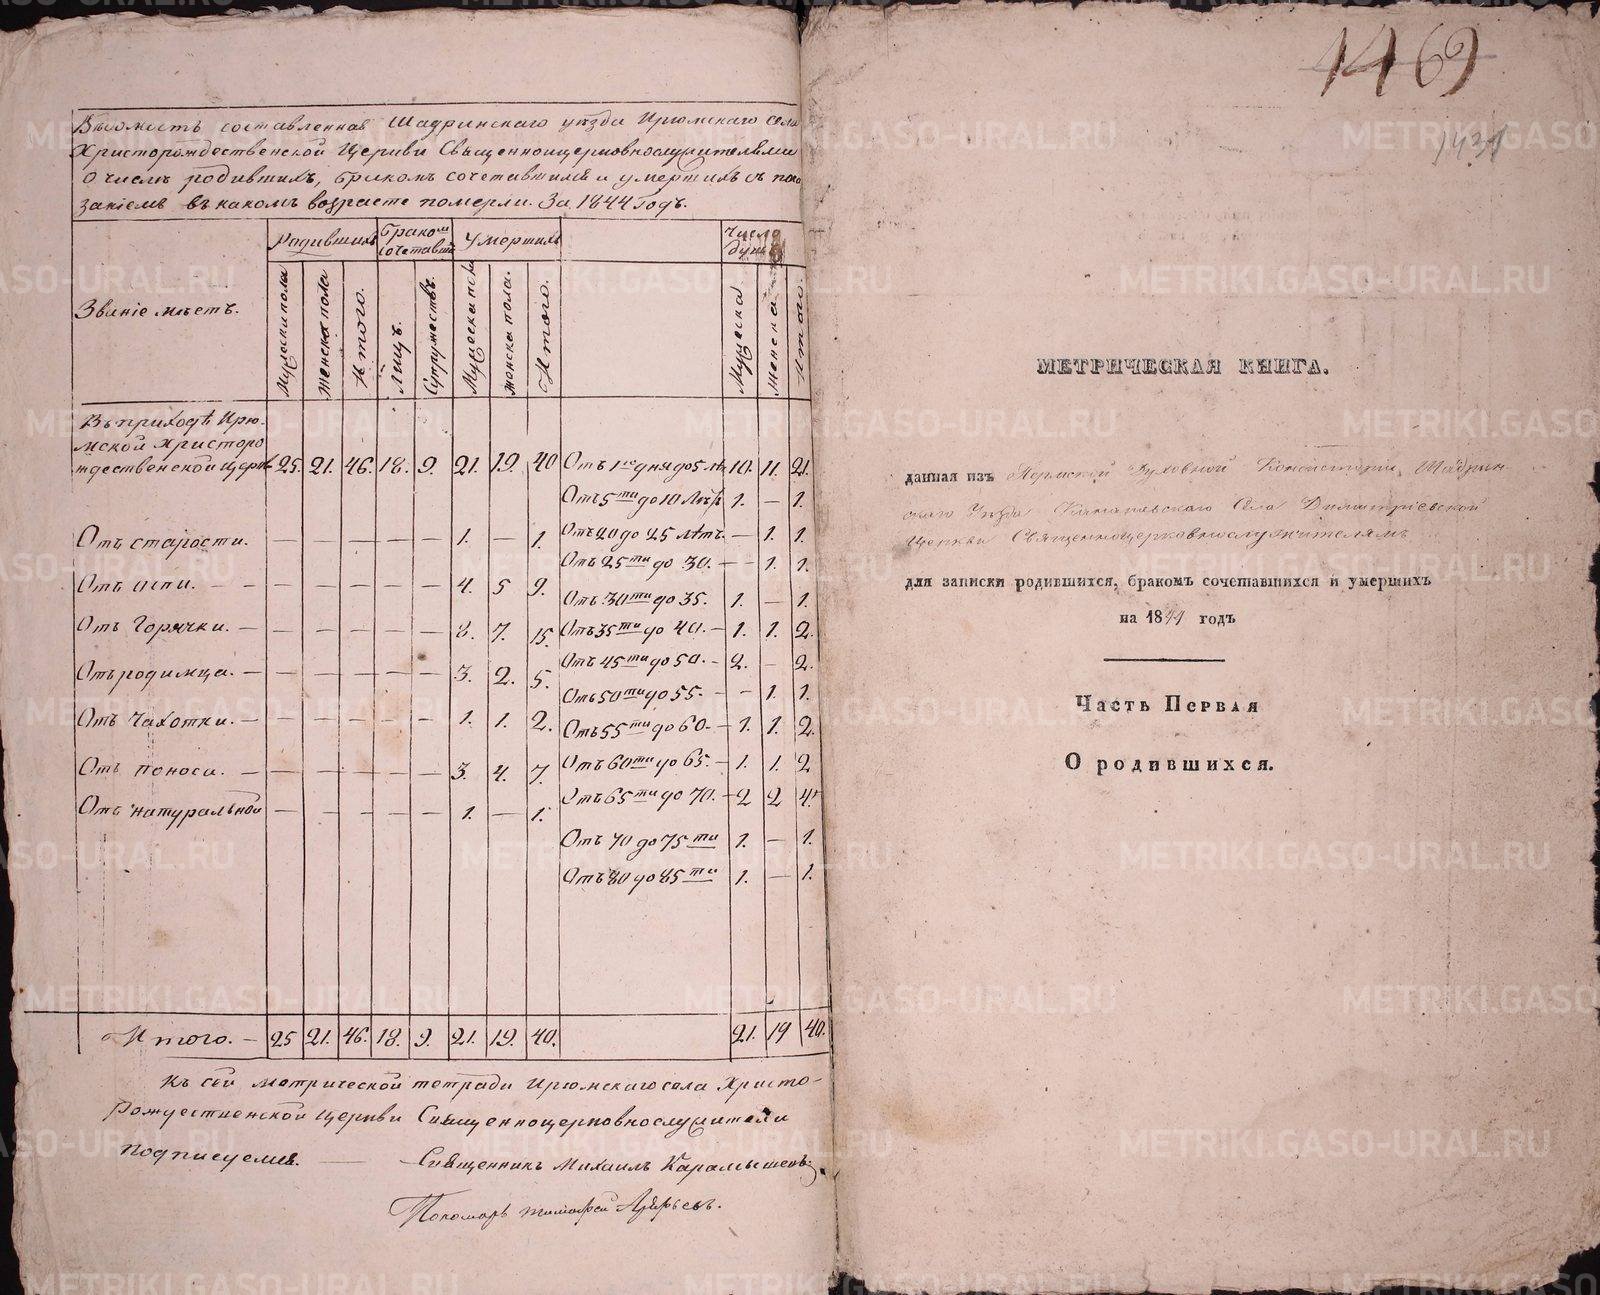 Вѣдомость составленная Шадринскаго уѣзда Ирюмскаго Села
Христорождественской Церкви Священноцерковнослужителями
о числѣ родившихъ, бракомъ сочетавшихся и умершихъ съ пока
заніемъ въ какомъ возрасте померли. За 1844 Годъ.
Званіе мѣстъ.
Родившихъ
Мужеска пола
Женска пола
Итого.
Бракомъ сочетавши
Лицъ.
Супружествъ.
Умершихъ
Мужеска пола
женска пола.
Итого.
Число душъ
Мужеска
Женска
Итого.
Въ приходѣ Ирю-
мской Христоро
ждественской Церкви 25. 21. 46. 18. 9. 21. 19. 40 Отъ 1го дня до 5 лѣ 10. 11. 21.
Отъ 5ти до 10 Лѣтъ 1. — 1.
Отъ старости. — — — — — 1. — 1. Отъ 20 до 25 лѣтъ. — 1. 1.
Отъ 25ти до 30. — — 1. 1.
Отъ оспы. — — — — — 4. 5 9. Отъ 30ти до 35. 1. — 1.
Отъ Горячки. — — — — — — 8. 7. 15. Отъ 35ти до 40. — 1. 1. 2.
Отъ 45ти до 50. — 2. — 2.
Отъ родимца. — — — — — — 3. 2. 5. Отъ 50ти до 55. — — 1. 1.
Отъ Чахотки. — — — — — — 1. 1. 2. Отъ 55ти до 60. — 1. 1. 2.
Отъ поноса. — — — — — — 3. 4. 7. Отъ 60ти до 65. — 1. 1. 2
Отъ 65ти до 70. — 2 2 4.
Отъ натуральной — — — — — 1. — 1.
Отъ 70 до 75ти 1. — 1.
Отъ 80 до 85ти 1. — 1.
Итого. — 25 21. 46. 18. 9. 21. 19. 40. 21. 19 40.
Къ сей метрической тетради Ирюмскаго села Христо-
Рождественской Церкви Священноцерковнослужители
подписуемся. — Священникъ Михаилъ Карамышевъ
Пономарь Тимофей
1469
1431
МЕТРИЧЕСКАЯ КНИГА.
данная изъ Пермской Духовной Консисторіи, Шадрин-
скаго Уѣзда Села Димитріевской
Церкви Священноцерковнослужителямъ
для записки родившихся, бракомъ сочетавшихся и умершихъ
на 1844 годъ
Часть Первая
О родившихся.
METRIKI.GASO-URAL.RU